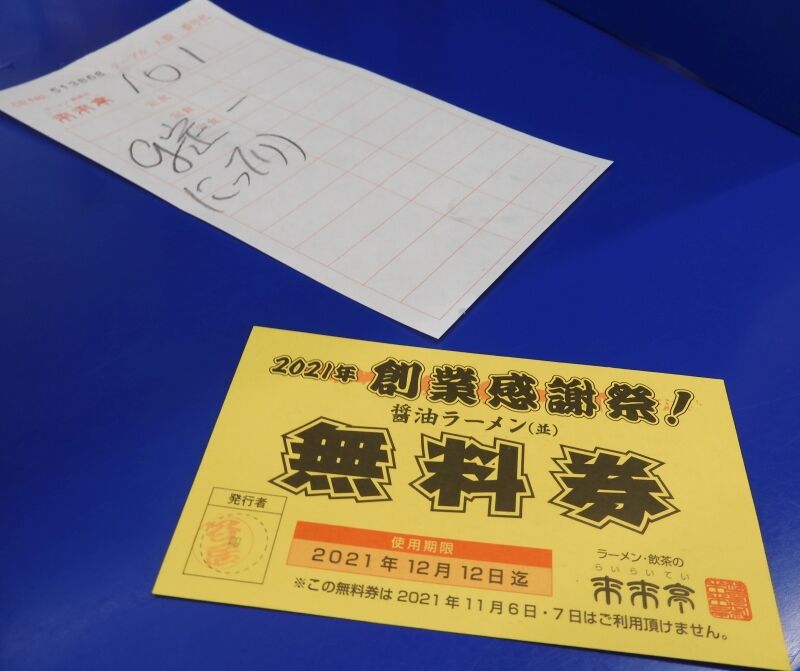 No. 513868 テーブル 人数
来来亭
101
定食
定食 一
(こってり)
2021年 創業感謝祭!
醤油ラーメン(並)
無料券
発行者
使用期限
2021年12月12日迄
ラーメン・飲茶の
らいらいてい
来来亭
※この無料券は2021年11月6日・7日はご利用頂けません。